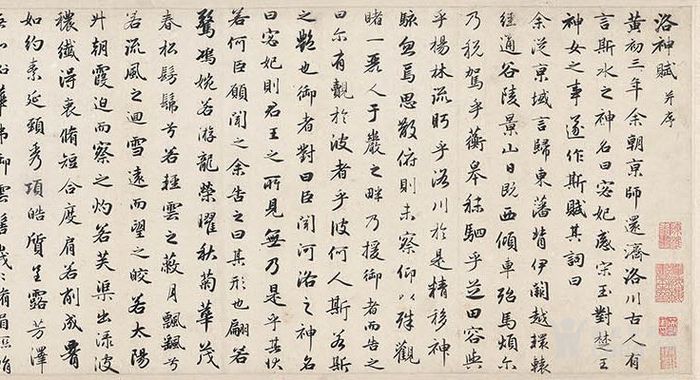 洛神賦 并序
黃初三年余朝京師還濟洛川古人有
言斯水之神名曰宓妃感宋玉對楚王
神女之事遂作斯賦其詞曰
余從京域言歸東藩背伊闕越轘轅
經通谷陵景山日既西傾車殆馬煩尔
乃税駕乎蘅皋秣駟乎芝田容與
乎楊林流眄乎洛川於是精移神
駭忽焉思散俯則未察仰以殊觀
睹一麗人于巖之畔乃援御者而告之
曰尔有覿於彼者乎彼何人斯若斯
之艷也御者對曰臣聞河洛之神名
曰宓妃則君王之所見無乃是乎其狀
若何臣願聞之余告之曰其形也翩若
驚鴻婉若游龍榮曜秋菊華茂
春松髣髴兮若輕雲之蔽月飄飄兮
若流風之迴雪遠而望之皎若太陽
升朝霞迫而察之灼若芙蕖出淥波
穠纖得衷脩短合度肩若削成腰
如約素延頸秀項皓質呈露芳澤
華弗御雲髻峩〻